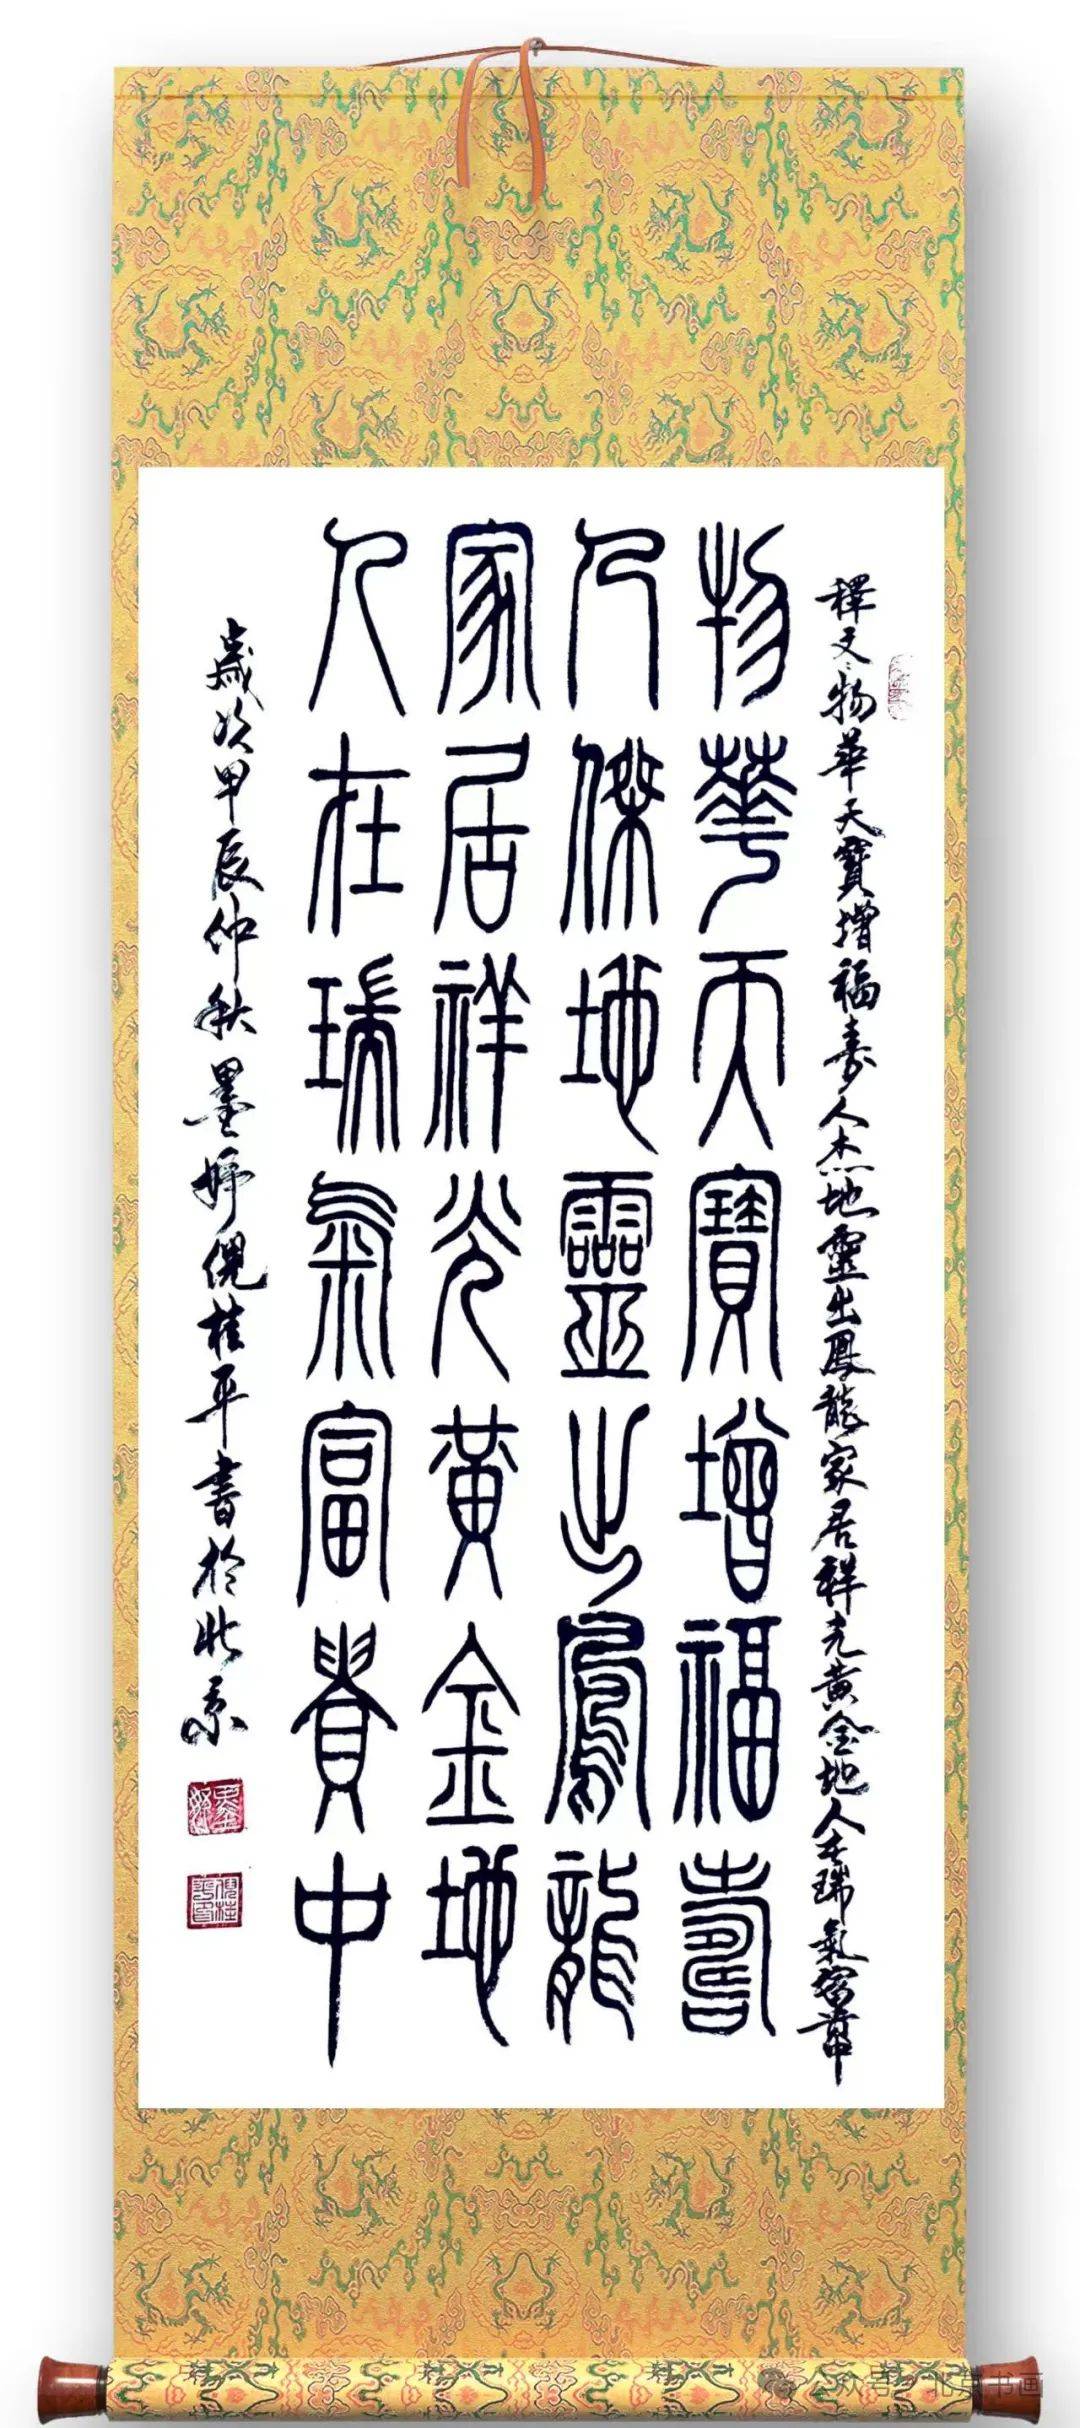 釋文：物華天寶增福壽人杰地靈出鳳龍家居祥光黃金地人在瑞氣富貴中
物華天寶增福壽
人傑地靈出鳳龍
家居祥光黃金地
人在瑞氣富貴中
歲次甲辰仲秋墨倪桂平書於北京
倪桂平印
公众号·北京书画